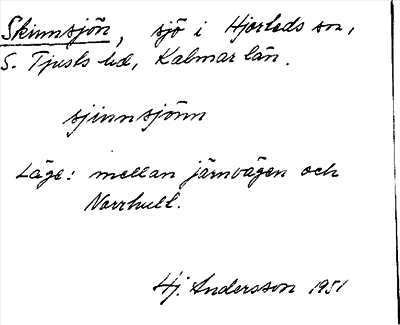 Skinnsjön, sjö i Hjorteds sn,
S. Tjusts hd, Kalmar län.
sjinnsjönn
Läge: mellan järnvägen och
Norrhult.
Hj. Andersson 1951